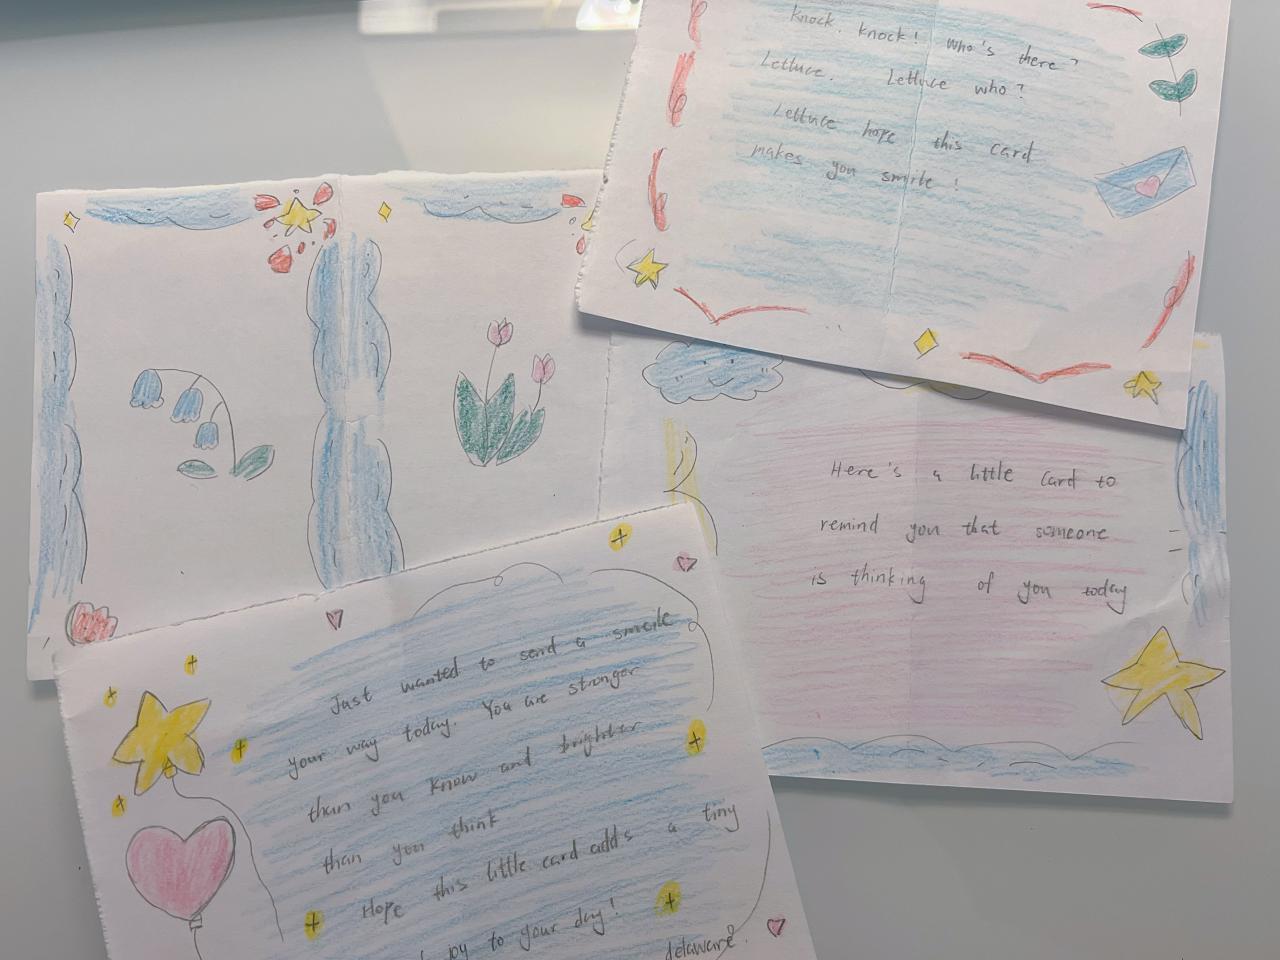 Knock, knock! Who's there?
Lettuce. Lettuce who?
Lettuce hope this card
makes you smile!
Here's a little card to
remind you that someone
is thinking of you today
Just wanted to send a smile
your way today. You are stronger
than you know and brighter
than you think
Hope this little card adds a tiny
joy to your day!
delaware.